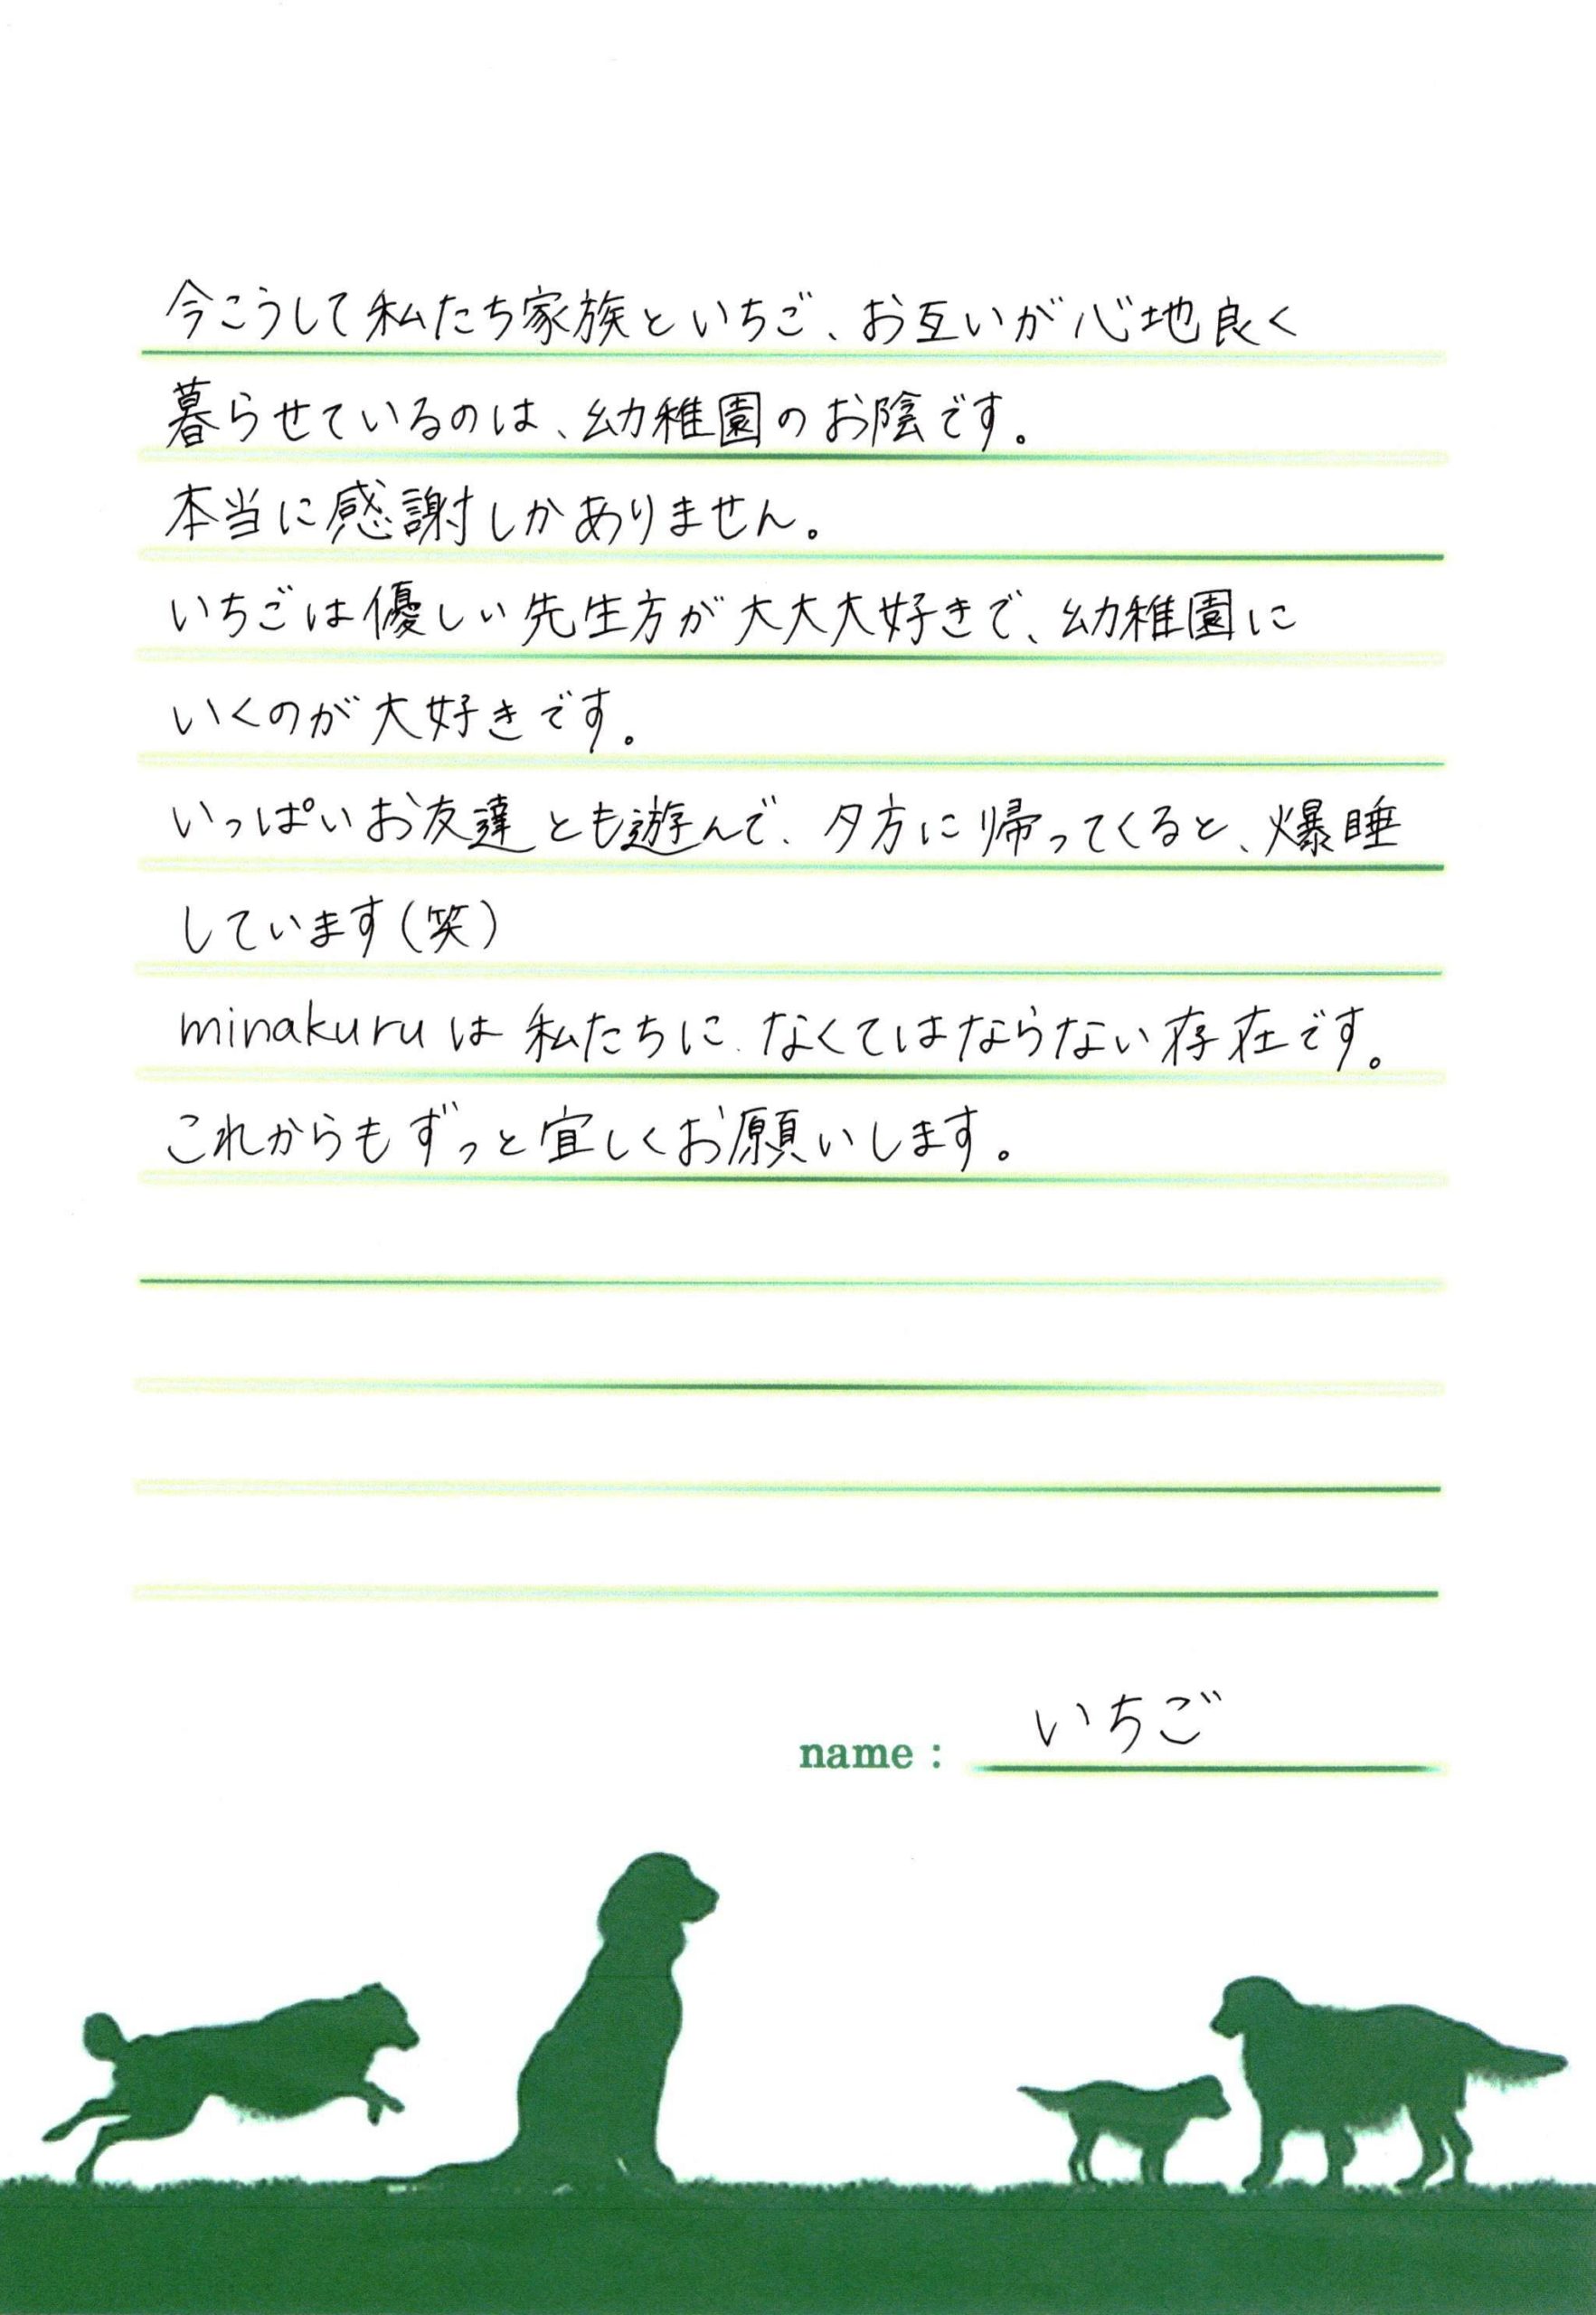 今こうして私たち家族といちご、お互いが心地良く
暮らせているのは、幼稚園のお陰です。
本当に感謝しかありません。
いちごは優しい先生方が大大大好きで、幼稚園に
いくのが大好きです。
いっぱいお友達とも遊んで、夕方に帰ってくると、爆睡
しています(笑)
minakuruは私たちに、なくてはならない存在です。
これからもずっと宜しくお願いします。
name : いちご